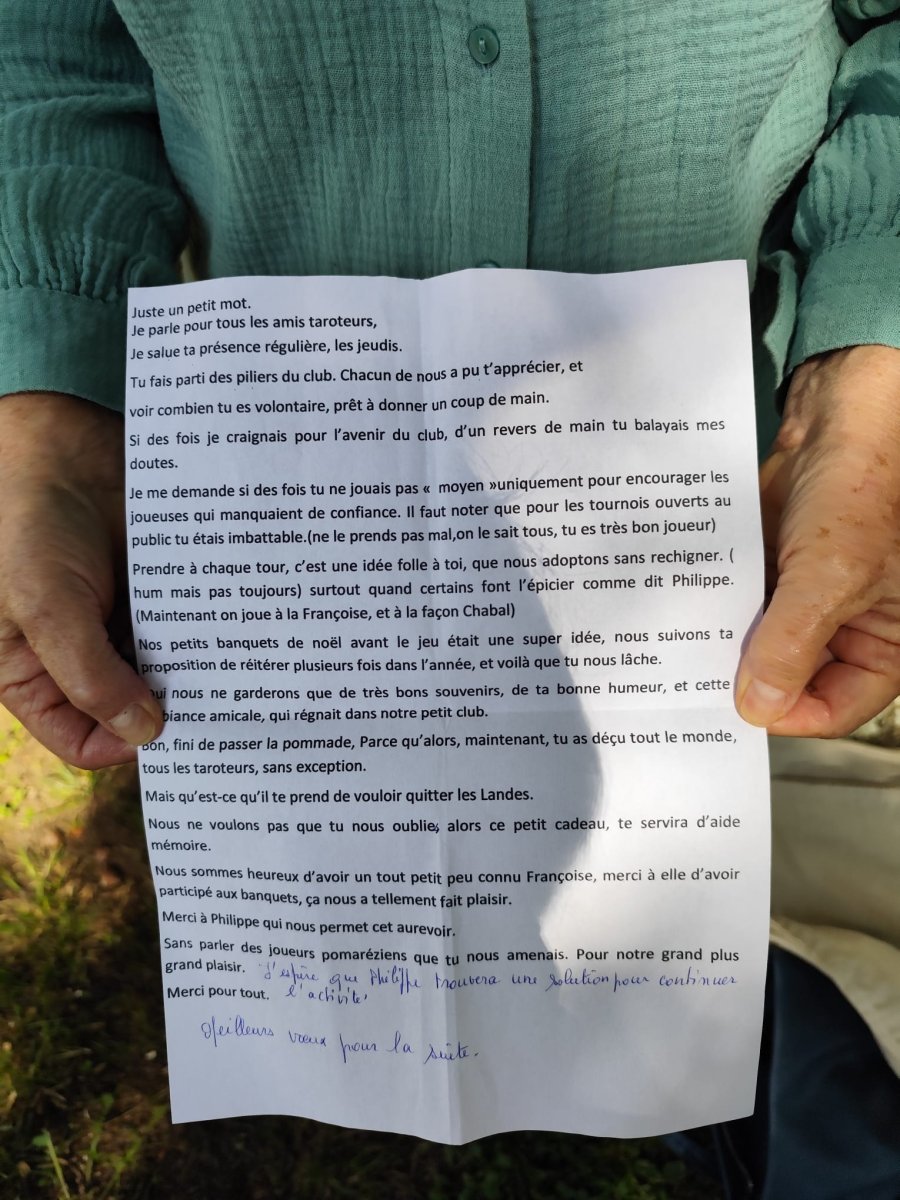 Juste un petit mot.
Je parle pour tous les amis taroteurs,
Je salue ta présence régulière, les jeudis.
Tu fais parti des piliers du club. Chacun de nous a pu t’apprécier, et
voir combien tu es volontaire, prêt à donner un coup de main.
Si des fois je craignais pour l’avenir du club, d’un revers de main tu balayais mes
doutes.
Je me demande si des fois tu ne jouais pas « moyen »uniquement pour encourager les
joueuses qui manquaient de confiance. Il faut noter que pour les tournois ouverts au
public tu étais imbattable.(ne le prends pas mal,on le sait tous, tu es très bon joueur)
Prendre à chaque tour, c’est une idée folle à toi, que nous adoptons sans rechigner. (
hum mais pas toujours) surtout quand certains font l’épicier comme dit Philippe.
(Maintenant on joue à la Françoise, et à la façon Chabal)
Nos petits banquets de noël avant le jeu était une super idée, nous suivons ta
proposition de réitérer plusieurs fois dans l’année, et voilà que tu nous lâche.
ui nous ne garderons que de très bons souvenirs, de ta bonne humeur, et cette
biance amicale, qui régnait dans notre petit club.
Bon, fini de passer la pommade, Parce qu’alors, maintenant, tu as déçu tout le monde,
tous les taroteurs, sans exception.
Mais qu’est-ce qu’il te prend de vouloir quitter les Landes.
Nous ne voulons pas que tu nous oublie, alors ce petit cadeau, te servira d’aide
mémoire.
Nous sommes heureux d’avoir un tout petit peu connu Françoise, merci à elle d’avoir
participé aux banquets, ça nous a tellement fait plaisir.
Merci à Philippe qui nous permet cet aurevoir.
Sans parler des joueurs pomaréziens que tu nous amenais. Pour notre grand plus
grand plaisir. J'espère que Philippe trouvera une solution pour continuer
Merci pour tout. l'activité.
Meilleurs vœux pour la suite.